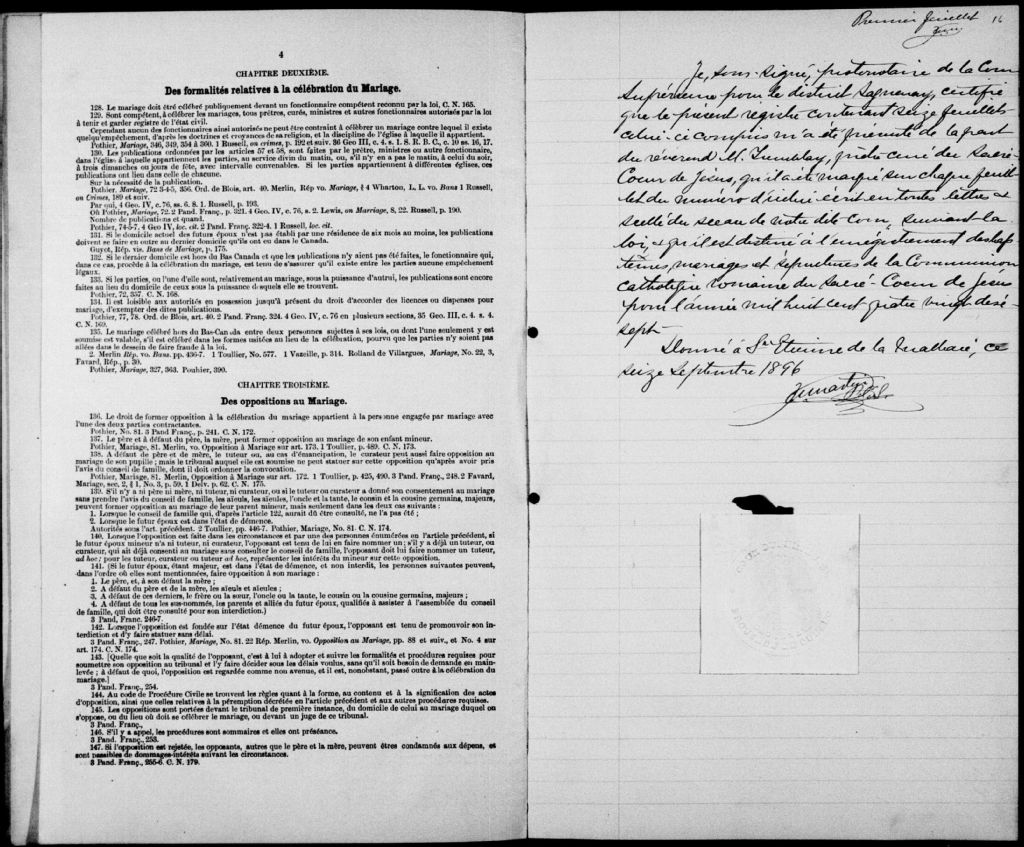 4
CHAPITRE DEUXIÈME.
Des formalités relatives à la célébration du Mariage.
128. Le mariage doit être célébré publiquement devant un fonctionnaire compétent reconnu par la loi, C. N. 165.
129. Sont compétent, à célébrer les mariages, tous prêtres, curés, ministres et autres fonctionnaires autorisés par la loi
à tenir et garder registre de l'état civil.
Cependant aucun des fonctionnaires ainsi autorisés ne peut être contraint à célébrer un mariage contre lequel il existe
quelqu'empêchement, d'après les doctrines et croyances de sa religion, et la discipline de l'église à laquelle il appartient.
Pothier, Mariage, 346, 349, 354 à 360. 1 Russell, on crimes, p. 192 et suiv. 36 Geo III, c. 4. s. I. S. R. B. C., c. 10 ss. 16, 17.
130. Les publications ordonnées par les articles 57 et 58, sont faites par le prêtre, ministres ou autre fonctionnaire,
dans l'église à laquelle appartiennent les parties, au service divin du matin, ou, s'il n'y en a pas le matin, à celui du soir,
à trois dimanches ou jours de fête, avec intervalle convenables. Si les parties appartiennent à différentes églises, ces
publications ont lieu dans celle de chacune.
Sur la nécessité de la publication.
Pothier, Mariage, 72 3-4-5, 356. Ord. de Blois, art. 40. Merlin, Rép vo. Mariage, § 4 Wharton, L. L. vo. Bans 1 Russell,
on Crimes, 189 et suiv.
Par qui, 4 Geo IV, c. 76, ss. 6. 8. 1 Russell, p. 193.
Où Pothier, Mariage, 72. 2 Pand. Franç., p. 321. 4 Geo IV, c. 76, s. 2. Lewis, on Marriage, 8, 22. Russell, p. 190.
Nombre de publications et quand.
Pothier, 74-5-7. 4 Geo IV, loc. cit. 2 Pand. Franç. 322-4. 1 Russell, loc. cit.
131. Si le domicile actuel des futurs époux n'est pas établi par une résidence de six mois au moins, les publications
doivent se faire en outre au dernier domicile qu'ils ont eu dans le Canada.
Guyot, Rép. vis. Bans de Mariage, p. 175.
132. Si le dernier domicile est hors du Bas Canada et que les publications n'y aient pas été faites, le fonctionnaire qui,
dans ce cas, procède à la célébration du mariage, est tenu de s'assurer qu'il existe entre les parties aucune empêchement
légaux.
133. Si les parties, ou l'une d'elle sont, relativement au mariage, sous la puissance d'autrui, les publications sont encore
faites au lieu du domicile de ceux sous la puissance desquels elle se trouvent.
Pothier, 72, 357. C. N. 168.
134. Il est loisible aux autorités en possession jusqu'à présent du droit d'accorder des licences ou dispenses pour
mariage, d'exempter des dites publications.
Pothier, 77, 78. Ord. de Blois, art. 40. 2 Pand. Franç. 324. 4 Geo IV, c. 76 en plusieurs sections, 35 Geo. III, c. 4. s. 4.
C. N. 169.
135. Le mariage célébré hors du Bas-Canada entre deux personnes sujettes à ses lois, ou dont l'une seulement y est
soumise est valable, s'il est célébré dans les formes usitées au lieu de la célébration, pourvu que les parties n'y soient pas
allées dans le dessein de faire fraude à la loi.
2. Merlin Rép. vo. Bans. pp. 436-7. 1 Toullier, No. 577. 1 Vazeille, p. 314. Rolland de Villargues, Mariage, No. 22, 3,
Favard, Rép., p. 30.
Pothier, Mariage, 327, 363. Pouhier, 390.
CHAPITRE TROISIÈME.
Des oppositions au Mariage.
136. Le droit de former opposition à la célébration du mariage appartient à la personne engagée par mariage avec
l'une des deux parties contractantes.
Pothier, No. 81. 3 Pand Franç., p. 241. C. N. 172.
137. Le père et à défaut du père, la mère, peut former opposition au mariage de son enfant mineur.
Pothier, Mariage, 81. Merlin, vo. Opposition à Mariage sur art. 173. 1 Toullier, p. 489. C. N. 173.
138. A défaut de père et de mère, le tuteur ou, au cas d'émancipation, le curateur peut aussi faire opposition au
mariage de son pupille ; mais le tribunal auquel elle est soumise ne peut statuer sur cette opposition qu'après avoir pris
l'avis du conseil de famille, dont il doit ordonner la convocation.
Pothier, Mariage, 81. Merlin, Opposition à Mariage sur art. 172. 1 Toullier, p. 425, 490. 3 Pand. Franç., 248. 2 Favard,
Mariage, sec. 2, § 1, No. 3, p. 59. 1 Delv. p. 62. C. N. 175.
139. S'il n'y a ni père ni mère, ni tuteur, ni curateur, ou si le tuteur ou curateur a donné son consentement au mariage
sans prendre l'avis du conseil de famille, les aïeuls, les aïeules, l'oncle et la tante, le cousin et la cousine germains, majeurs,
peuvent former opposition au mariage de leur parent mineur, mais seulement dans les deux cas suivants :
1. Lorsque le conseil de famille qui, d'après l'article 122, aurait dû être consulté, ne l'a pas été ;
2. Lorsque le futur époux est dans l'état de démence.
Autorités sous l'art. précédent. 2 Toullier, pp. 446-7. Pothier, Mariage, No. 81. C. N. 174.
140. Lorsque l'opposition est faite dans les circonstances et par une des personnes énumérées en l'article précédent, si
le futur époux mineur n'a ni tuteur, ni curateur, l'opposant est tenu de lui en faire nommer un ; s'il y a déjà un tuteur, ou
curateur, qui ait déjà consenti au mariage sans consulter le conseil de famille, l'opposant doit lui faire nommer un tuteur,
ad hoc ; pour les tuteur, curateur ou tuteur ad hoc, représenter les intérêts du mineur sur cette opposition.
141. (Si le futur époux, étant majeur, est dans l'état de démence, et non interdit, les personnes suivantes peuvent,
dans l'ordre où elles sont mentionnées, faire opposition à son mariage :
1. Le père, et, à son défaut la mère ;
2. A défaut du père et de la mère, les aïeuls et aïeules ;
3. A défaut de ces derniers, le frère ou la sœur, l'oncle ou la tante, le cousin ou la cousine germains, majeurs ;
4. A défaut de tous les sus-nommés, les parents et alliés du futur époux, qualifiés à assister à l'assemblée du conseil
de famille, qui doit être consulté pour son interdiction.)
3 Pand, Franc. 246-7.
142. Lorsque l'opposition est fondée sur l'état démence du futur époux, l'opposant est tenu de promouvoir son in-
terdiction et d'y faire statuer sans délai.
3 Pand. Franç., 247. Pothier, Mariage, No. 81. 22 Rép. Merlin, vo. Opposition au Mariage, pp. 88 et suiv., et No. 4 sur
art. 174. C. N. 174.
143. [Quelle que soit la qualité de l'opposant, c'est à lui à adopter et suivre les formalités et procédures requises pour
soumettre son opposition au tribunal et l'y faire décider sous les délais voulus, sans qu'il soit besoin de demande en main-
levée ; à défaut de quoi, l'opposition est regardée comme non avenue, et il est, nonobstant, passé outre à la célébration du
mariage.]
3 Pand. Franç., 254.
144. Au code de Procédure Civile se trouvent les règles quant à la forme, au contenu et à la signification des actes
d'opposition, ainsi que celles relatives à la péremption décrétée en l'article précédent et aux autres procédures requises.
145. Les oppositions sont portées devant le tribunal de première instance, du domicile de celui au mariage duquel on
s'oppose, ou du lieu où doit se célébrer le mariage, ou devant un juge de ce tribunal.
3 Pand. Franç.,
146. S'il y a appel, les procédures sont sommaires et elles ont préséance.
3 Pand. Franç., 253.
147. Si l'opposition est rejetée, les opposants, autres que le père et la mère, peuvent être condamnés aux dépens, et
sont passibles de dommages-intérêts suivant les circonstances.
3 Pand. Franç., 255-6. C. N. 179.
Premier feuillet 16
Je, sous-signé, protonotaire de la Cour
Supérieure pour le district Saguenay, certifie
que le présent registre contenant seize feuillets
celui-ci compris m'a été présenté de la part
du révérend M. Tremblay, prêtre curé du Sacré-
Coeur de Jésus, qu'il a été marqué sur chaque feuil-
let du numéro d'icelui écrit en toutes lettres &
scellé du sceau de notre dite Cour, suivant la
loi, & qu'il est destiné à l'enregistrement des bap-
têmes, mariages et sépultures de la Communion
catholique romaine du Sacré-Coeur de Jésus
pour l'année mil huit cent quatre vingt dix-
sept-
Donné à St Etienne de la Malbaie, ce
seize Septembre 1896